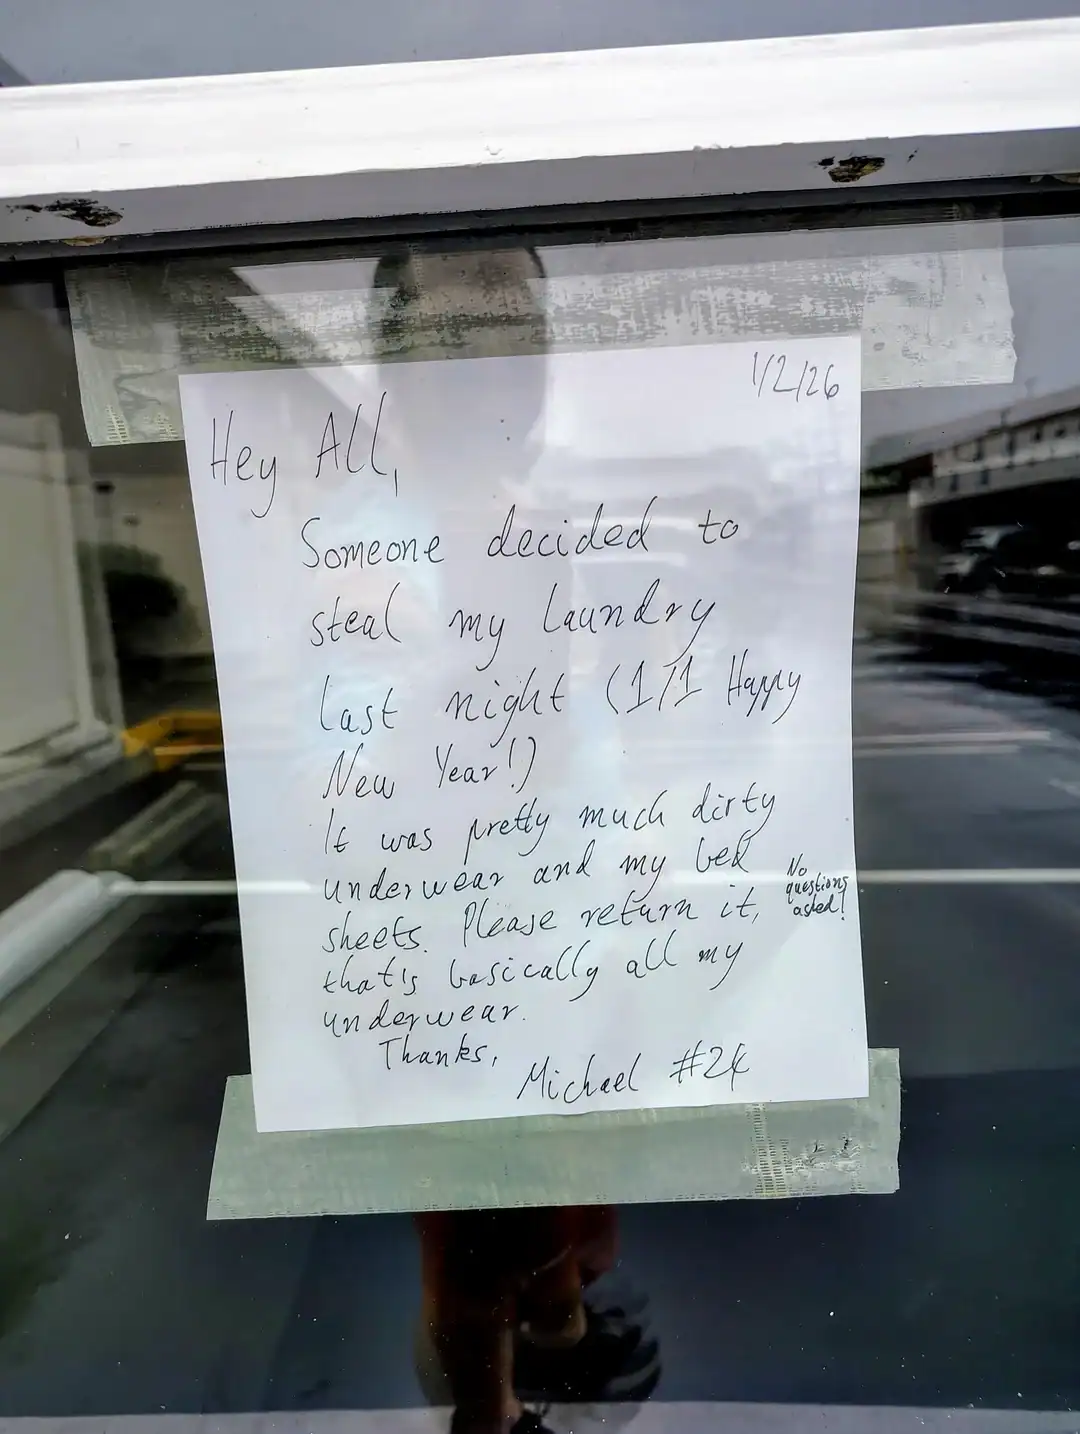 1/2/26
Hey All,
Someone decided to
steal my laundry
last night (1/1 Happy
New Year!)
It was pretty much dirty
underwear and my bed
sheets. Please return it, No questions asked!
that's basically all my
underwear.
Thanks,
Michael #24